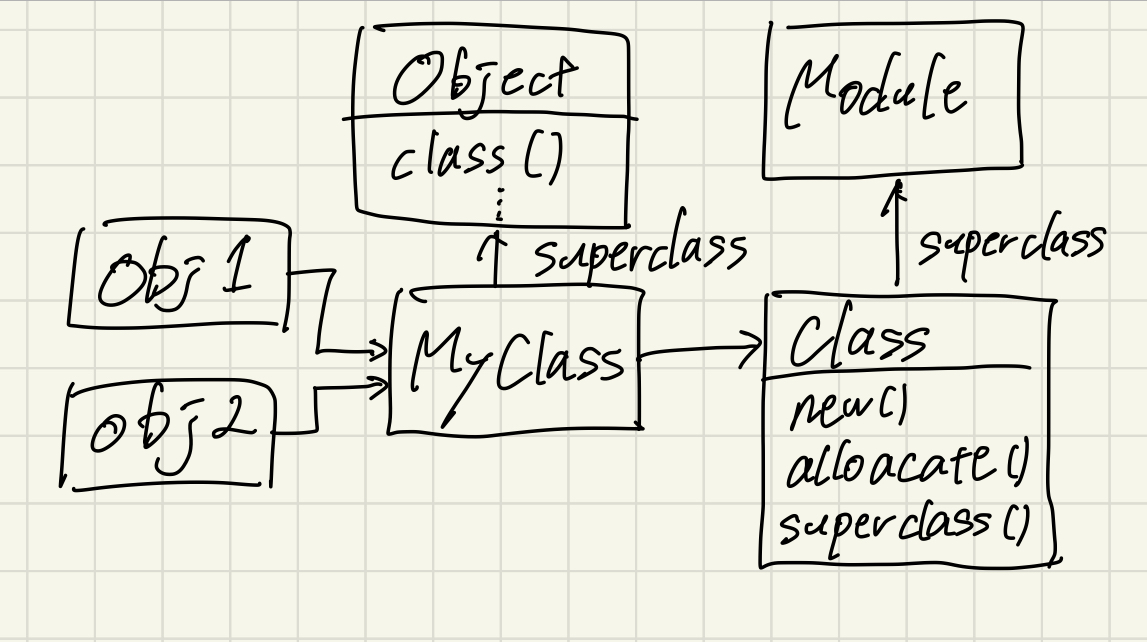 Object
class()
Module
superclass
superclass
Obj 1
MyClass
Class
obj 2
new()
alloacate()
superclass()